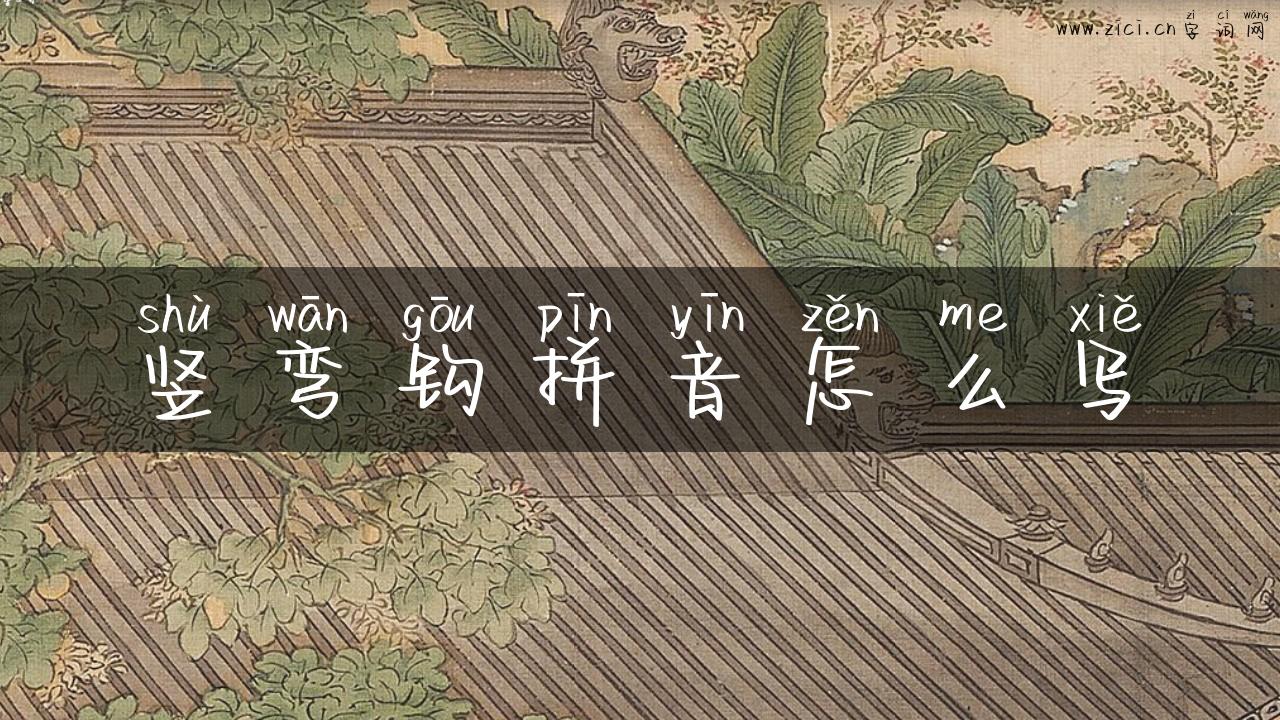 zì cí wǎng
www.zici.cn 字词网
shù wān gōu pīn yīn zěn me xiě
竖弯钩拼音怎么写